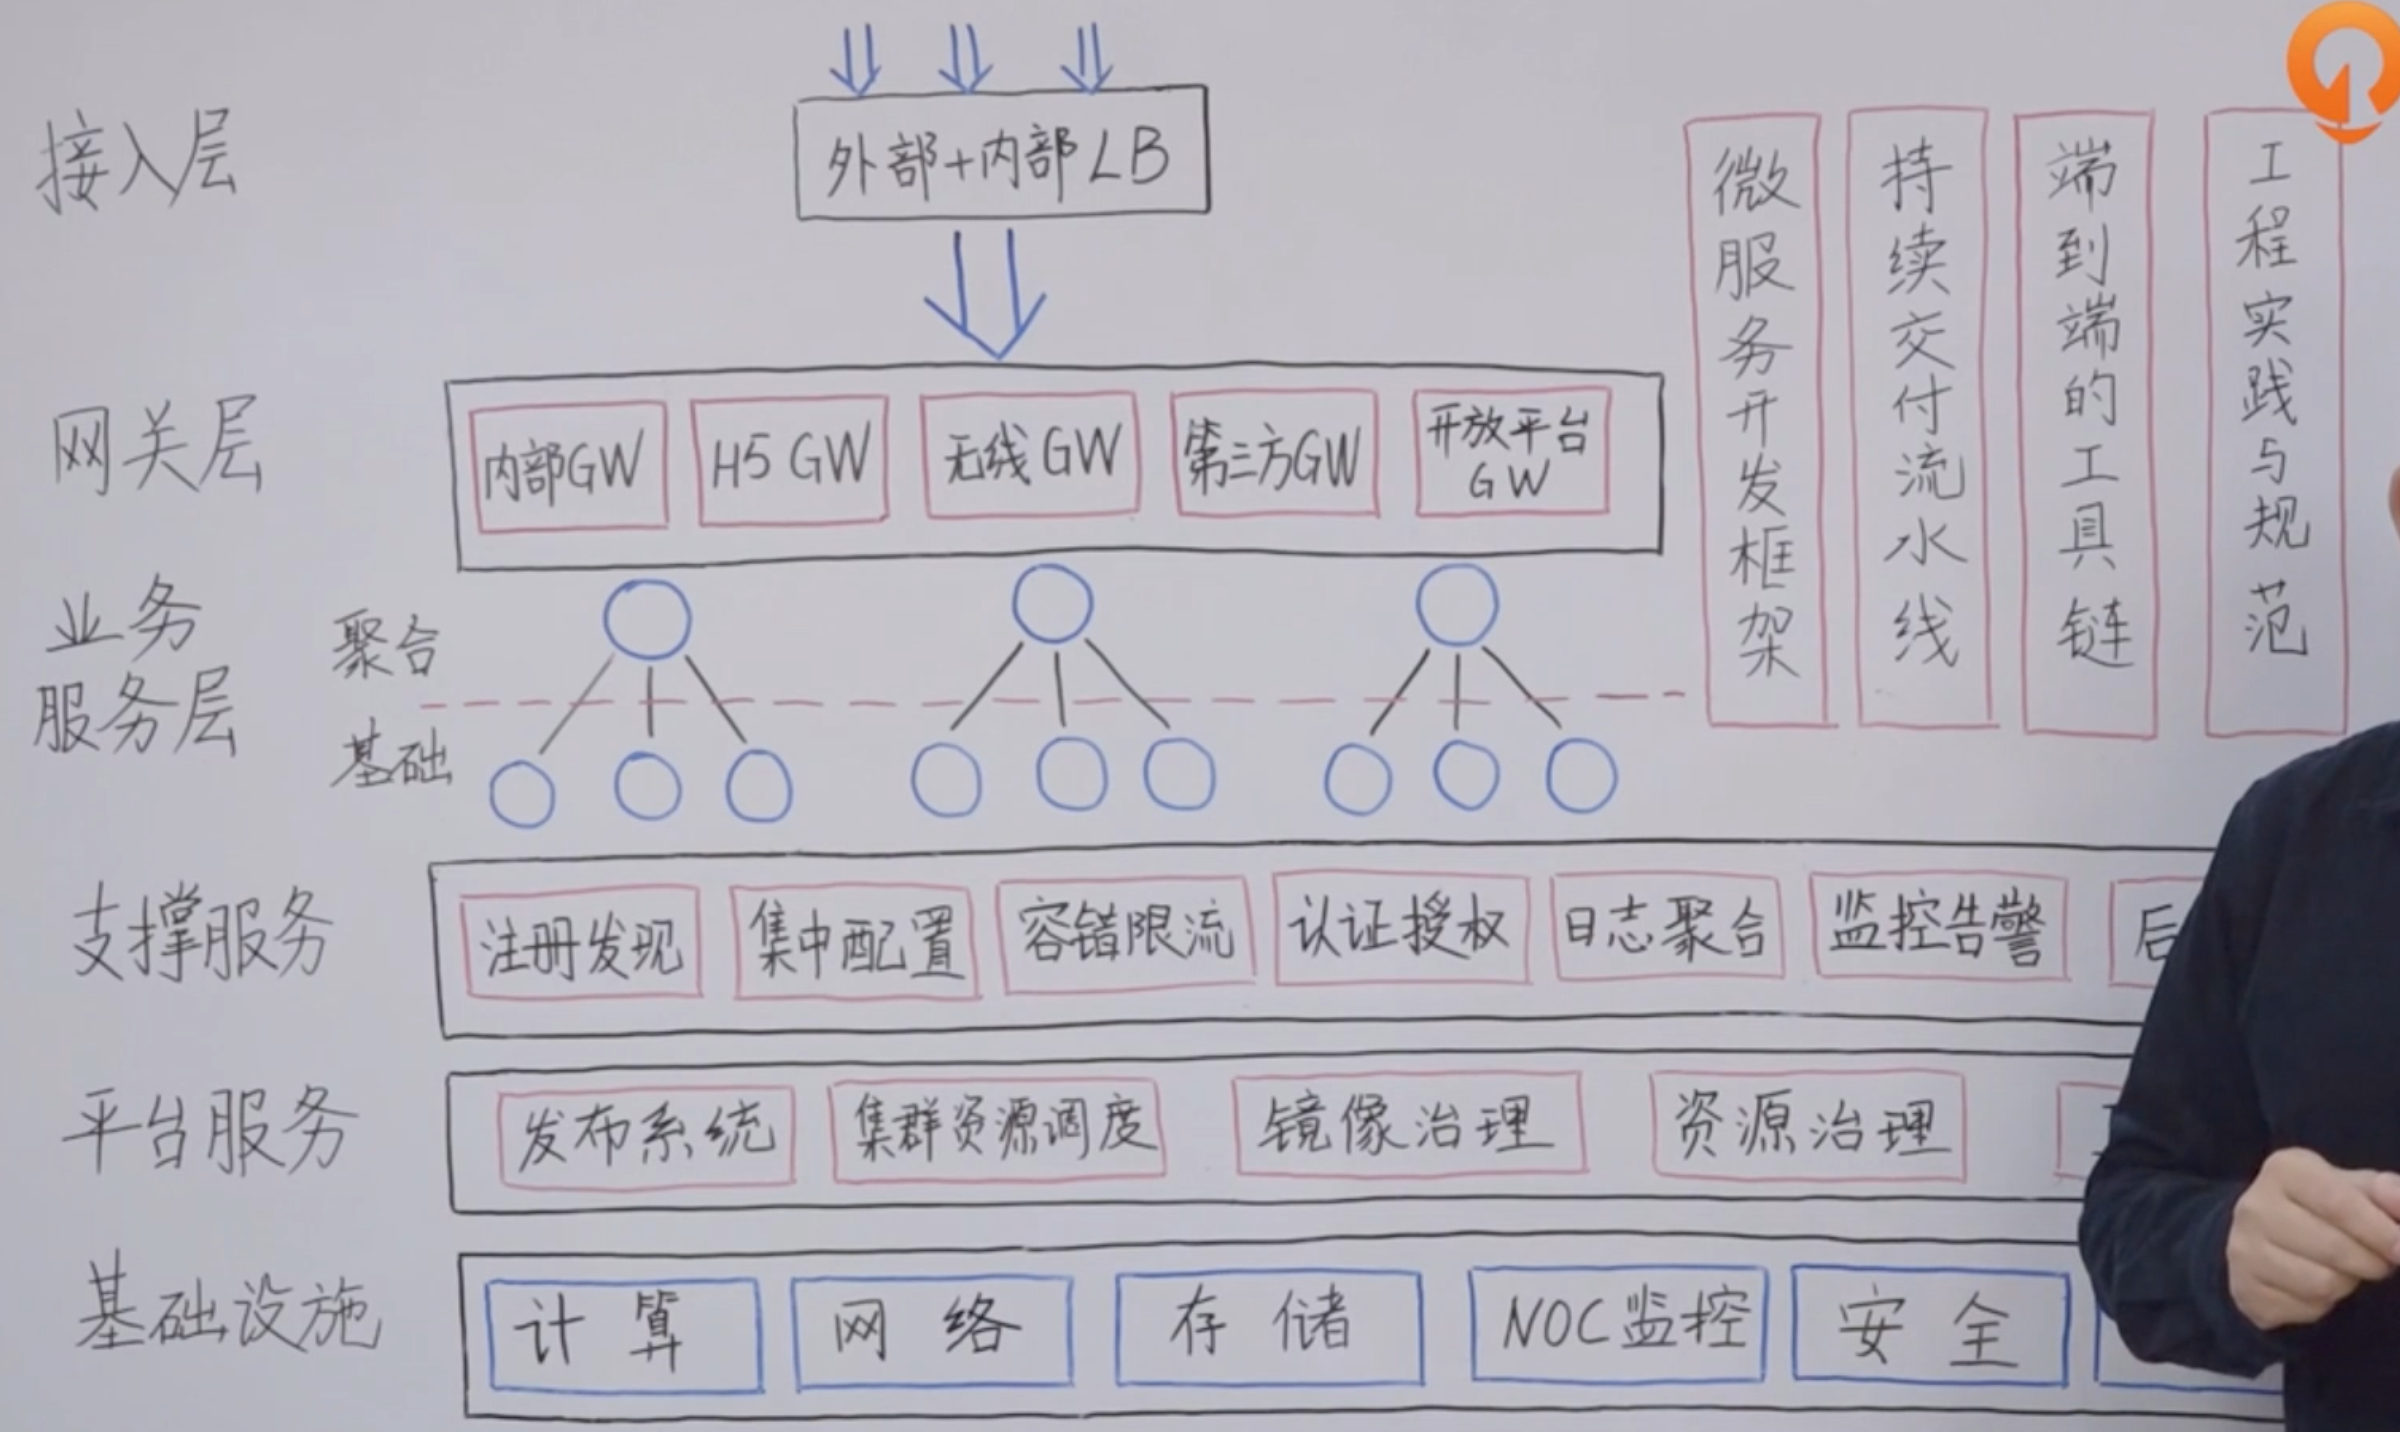 接入层
外部+内部LB
网关层
内部GW
H5 GW
无线GW
第三方GW
开放平台
GW
业务
服务层
聚合
基础
微服务开发框架
持续交付流水线
端到端的工具链
工程实践与规范
支撑服务
注册发现
集中配置
容错限流
认证授权
日志聚合
监控告警
后
平台服务
发布系统
集群资源调度
镜像治理
资源治理
基础设施
计算
网络
存储
NOC监控
安全